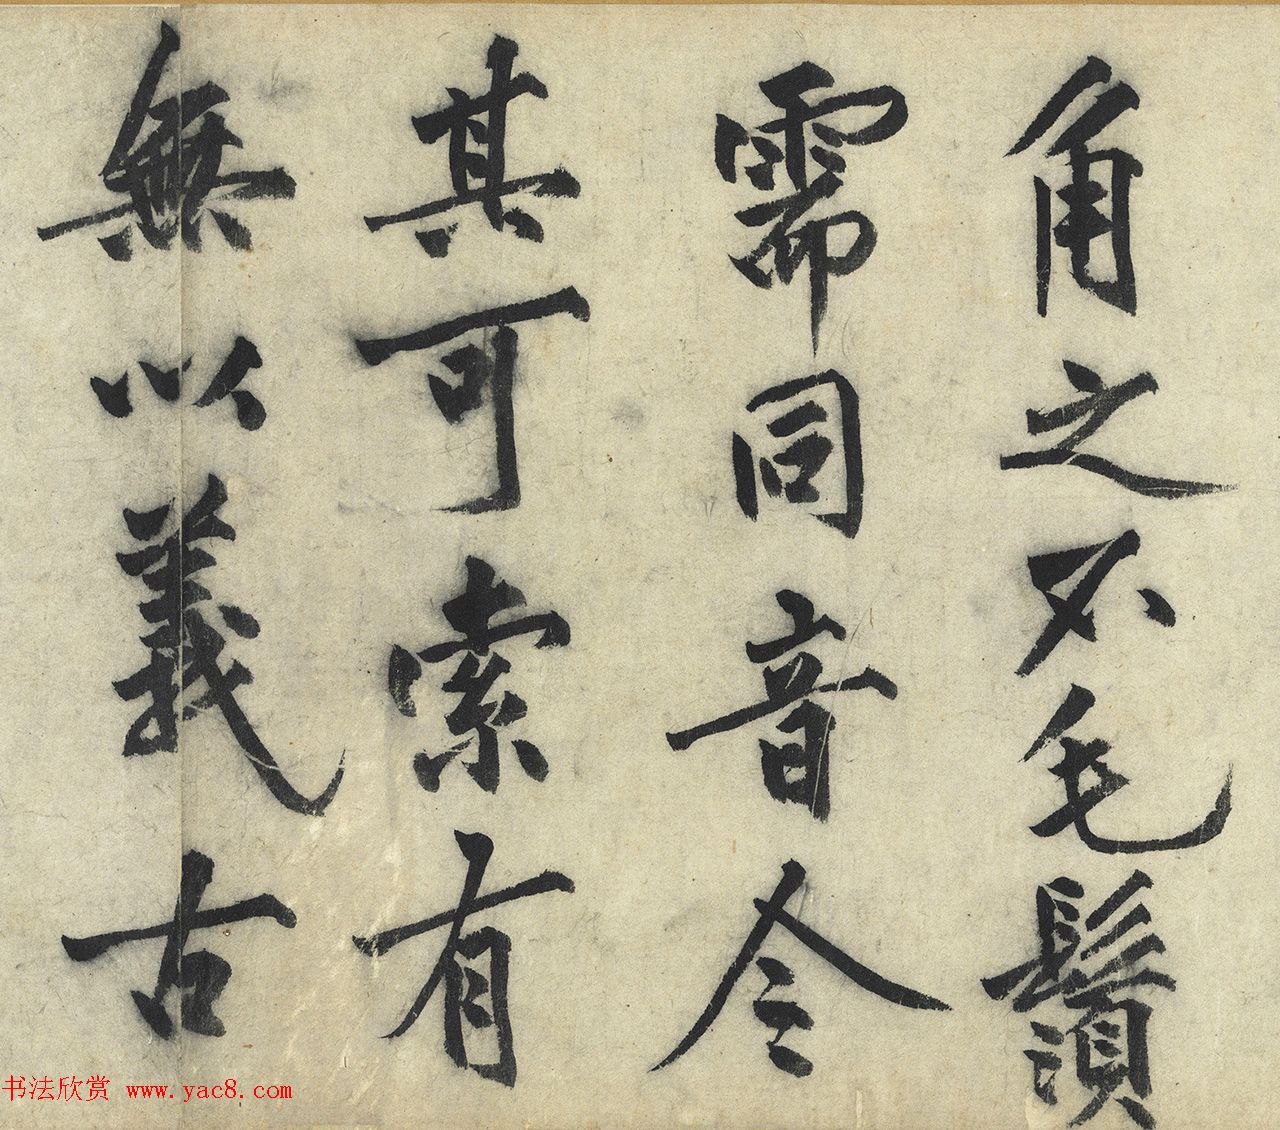 角之不毛鬚
需同音今
其可索有
無以義古
书法欣赏 www.yac8.com